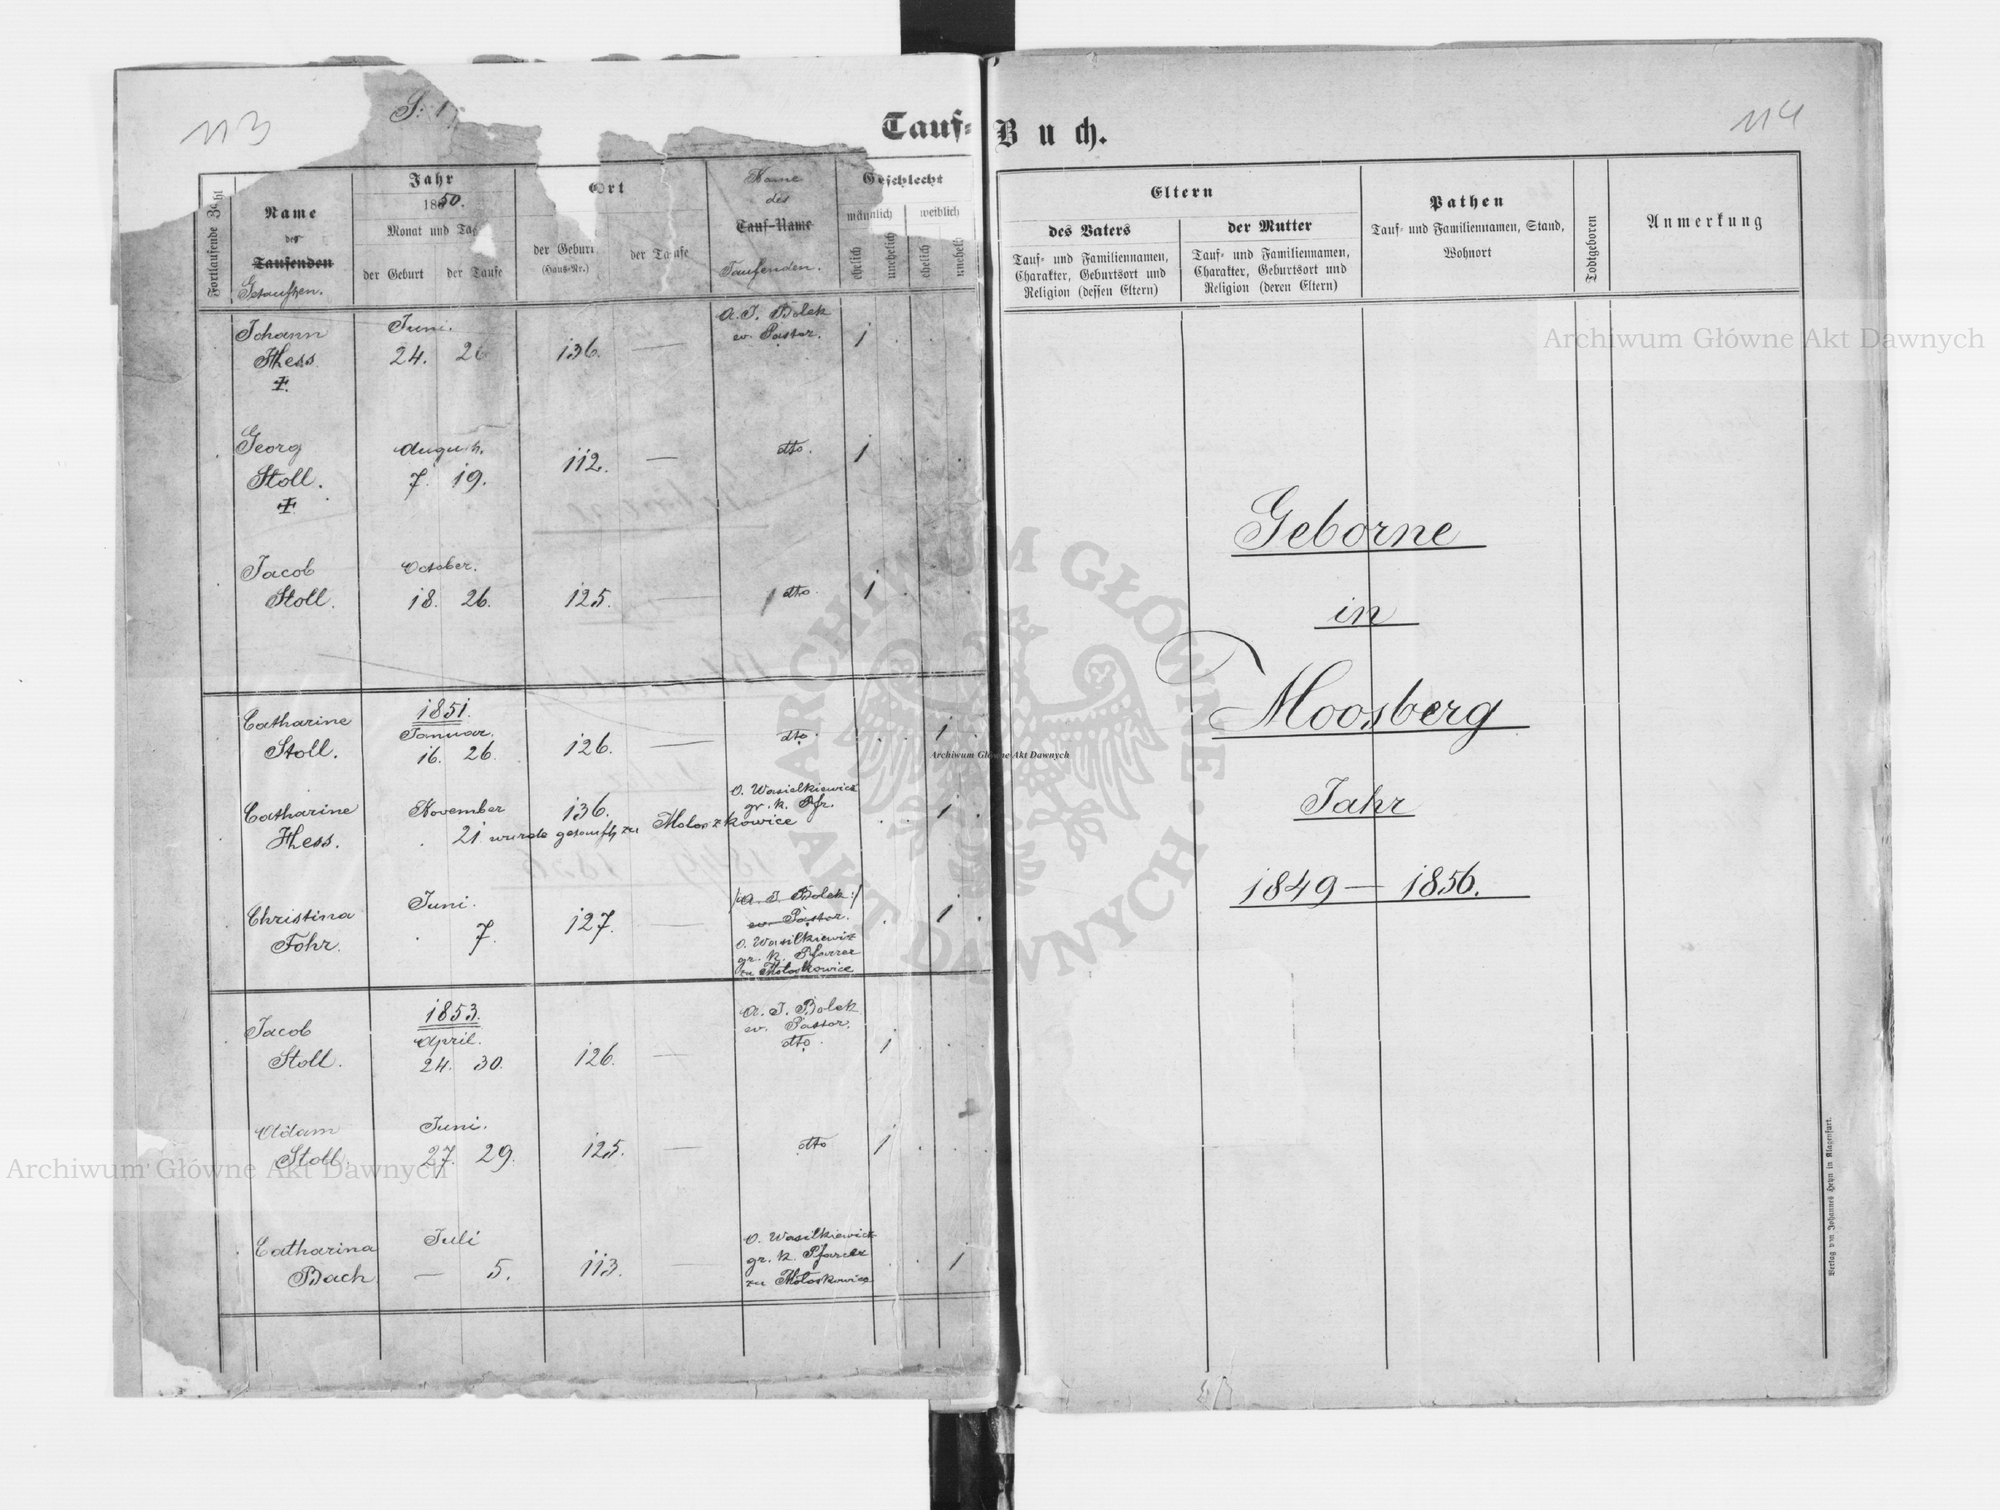 113
S. 1
Tauf=
Fortlaufende Zahl
Name
des
Taufenden
Getauften.
Jahr
1850.
Monat und Tag
der Geburt
der Taufe
Ort
der Geburt
(Haus-Nr.)
der Taufe
Name
des
Tauf-Name
Taufenden.
Geschlecht
männlich
weiblich
ehelich
unehelich
ehelich
unehel
Johann Juni. A. J. Bolek
Hess 24. 26 136. — ev. Pastor. 1
Georg August. dto. 1
Stoll. 7. 19. 112. —
Jacob October.
Stoll. 18. 26. 125. — dto. 1
1851.
Catharine Januar.
Stoll. 16. 26. 126. — dto. 1
Catharine November 136. O. Wasielkiewicz
gr. k. Pfr.
Hess. 21 wurde getauft zu Moloszkowice 1
Christina Juni. /: A. J. Bolek :/
ev. Pastor.
Fohr. 7. 127. — O. Wasilkiewicz 1
gr. k. Pfarrer
zu Moloskowice
1853. A. J. Bolek
Jacob April. ev. Pastor.
Stoll. 24. 30. 126. — dto. 1
Adam Juni.
Stoll. 27. 29. 125. — dto 1
Catharina Juli O. Wasilkiewicz
Bach — 5. 113. — gr. k. Pfarrer 1
zu Moloskowice
114
Buch.
Eltern
des Vaters
Tauf- und Familiennamen,
Charakter, Geburtsort und
Religion (dessen Eltern)
der Mutter
Tauf- und Familiennamen,
Charakter, Geburtsort und
Religion (deren Eltern)
Pathen
Tauf- und Familiennamen, Stand,
Wohnort
Todtgeboren
Anmerkung
Geborne
in
Moosberg
Jahr
1849 — 1856.
Verlag von Johannes Heyn in Klagenfurt.
Archiwum Główne Akt Dawnych
Archiwum Główne Akt Dawnych
Archiwum Główne Akt Dawnych
ARCHIWUM GŁÓWNE · AKT DAWNYCH ·